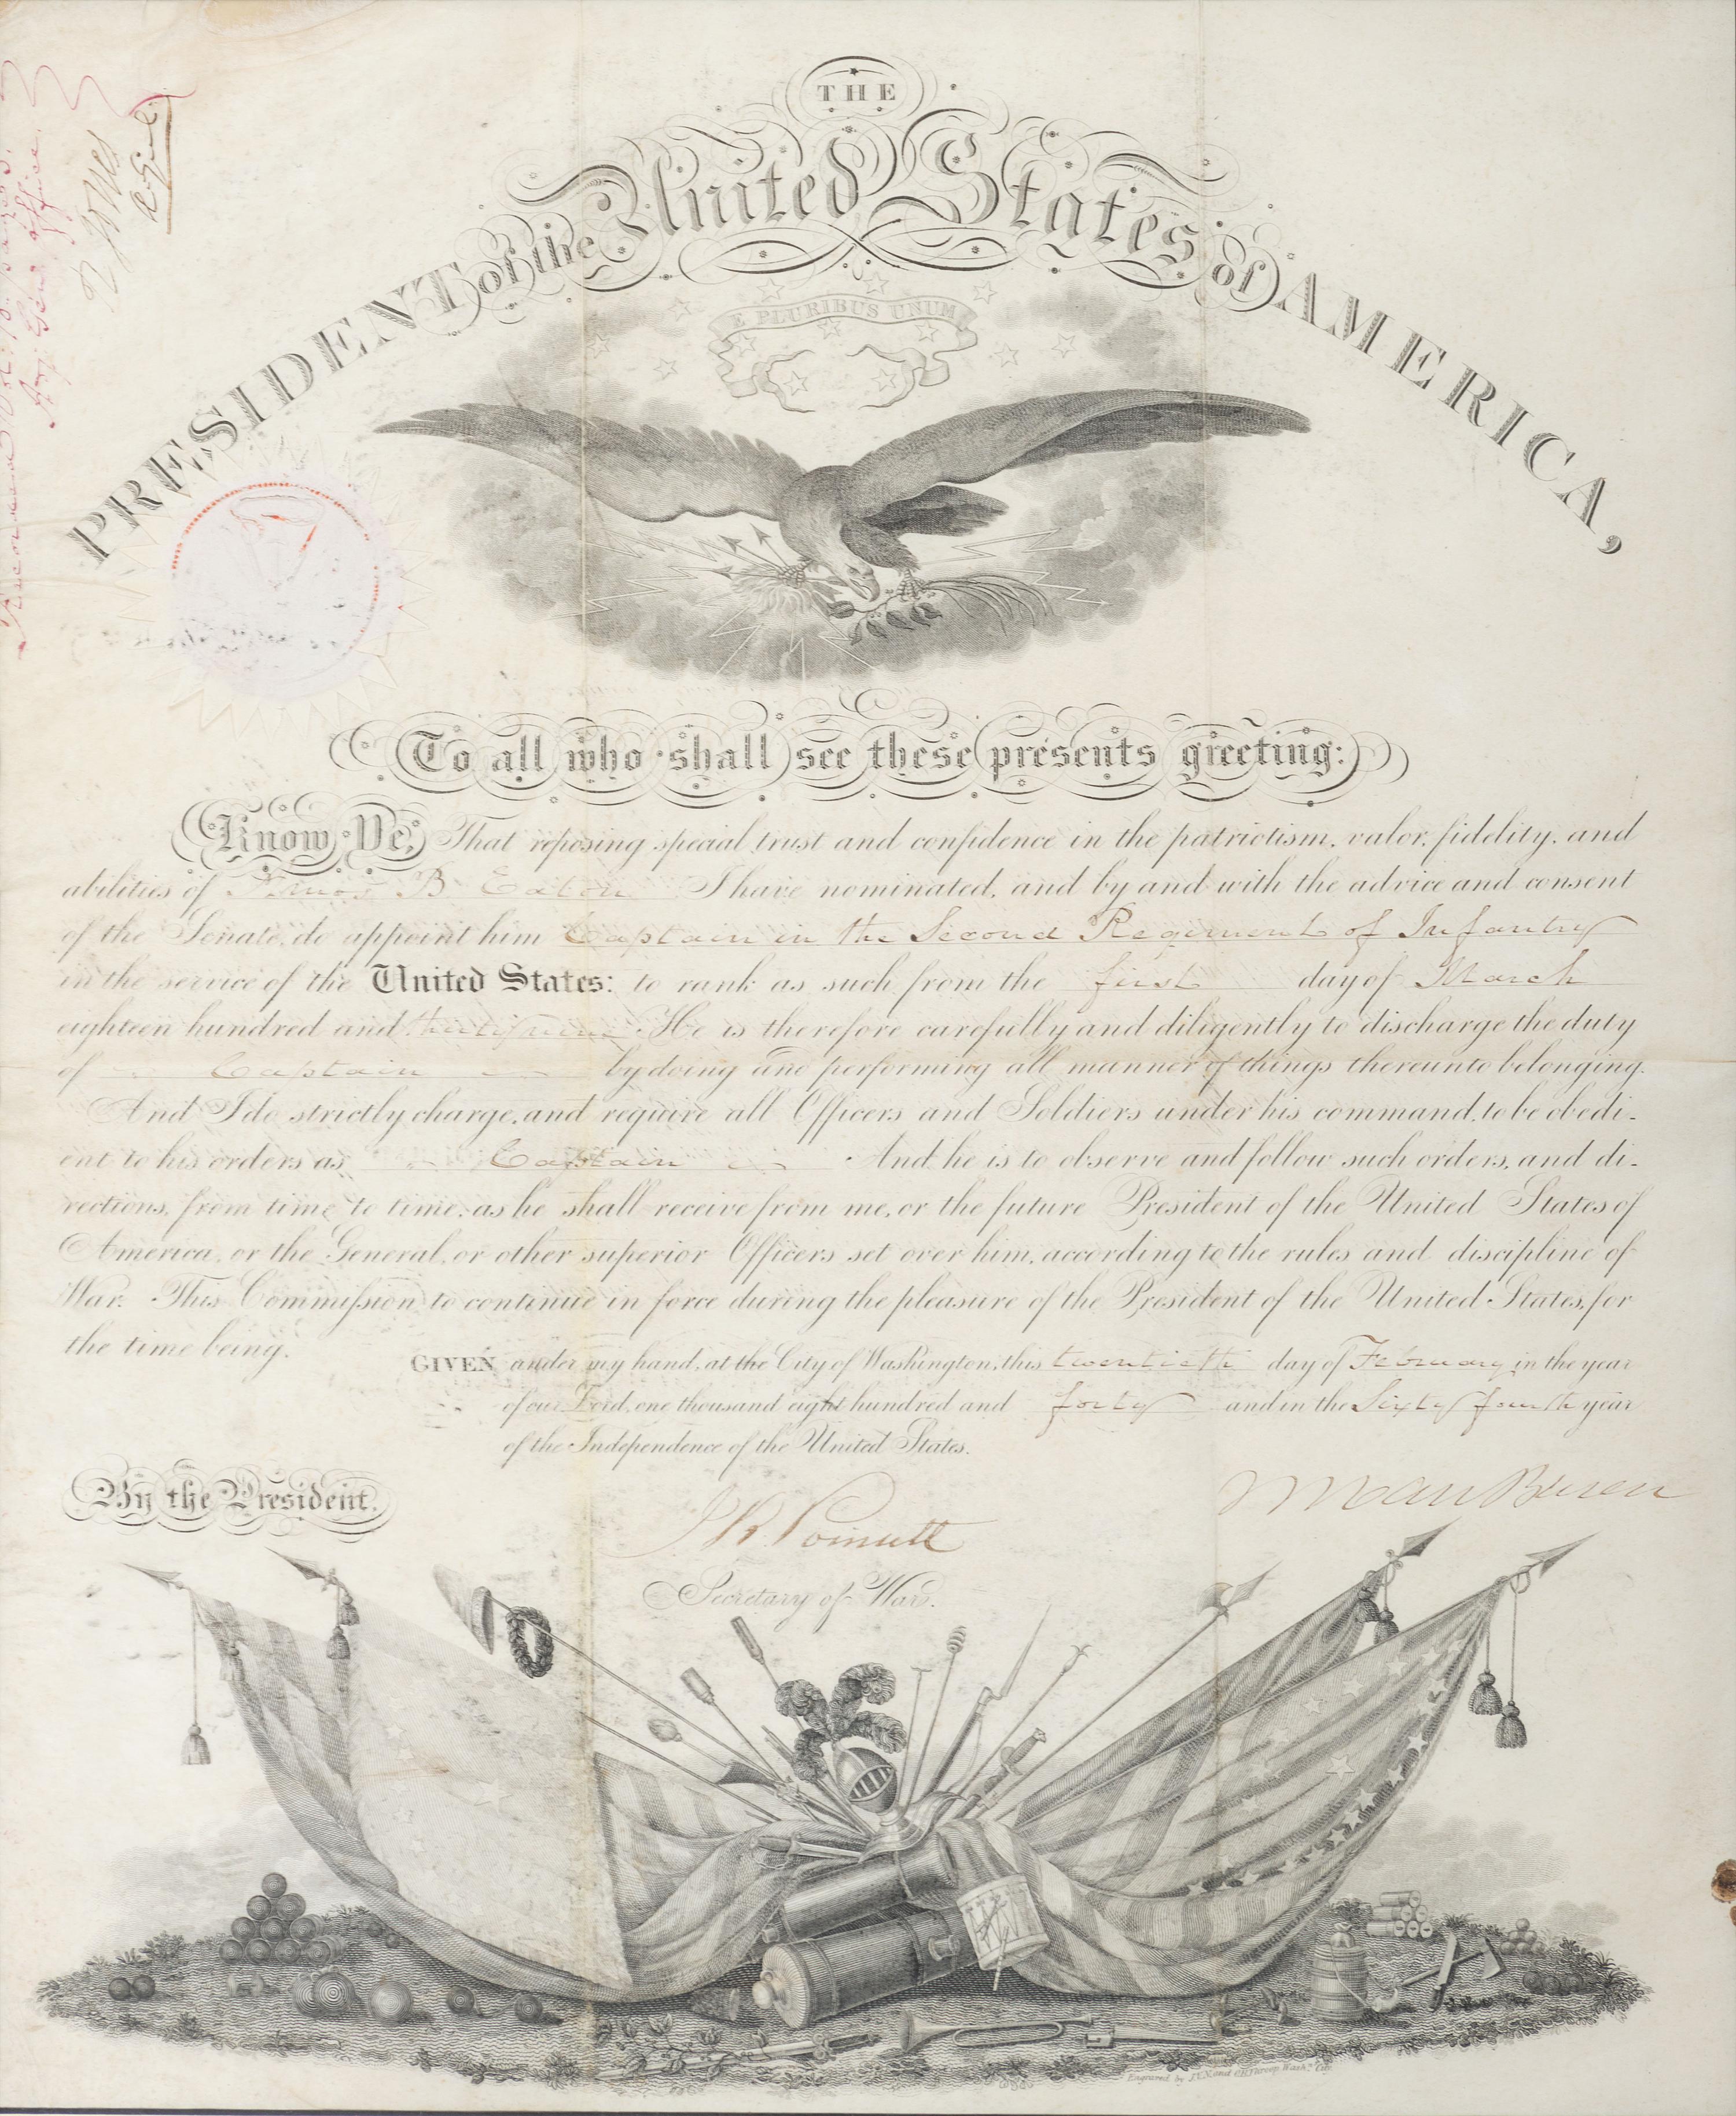 THE
PRESIDENT of the United States of AMERICA,
E PLURIBUS UNUM
To all who shall see these presents greeting:
Know Ye, That reposing special trust and confidence in the patriotism, valor, fidelity, and
abilities of Amos B Eaton I have nominated, and by and with the advice and consent
of the Senate, do appoint him Captain in the Second Regiment of Infantry
in the service of the United States: to rank as such from the first day of March
eighteen hundred and thirty nine. He is therefore carefully and diligently to discharge the duty
of Captain by doing and performing all manner of things thereunto belonging.
And I do strictly charge, and require all Officers and Soldiers under his command, to be obedi-
ent to his orders as Captain And he is to observe and follow such orders, and di-
rections, from time to time, as he shall receive from me, or the future President of the United States of
America, or the General, or other superior Officers set over him, according to the rules and discipline of
War. This Commission to continue in force during the pleasure of the President of the United States, for
the time being.
GIVEN under my hand, at the City of Washington, this twentieth day of February in the year
of our Lord, one thousand eight hundred and forty and in the Sixty fourth year
of the Independence of the United States.
By the President.
M Van Buren
J R Poinsett
Secretary of War.
R Jones
A Genl.
Adj. Gen office.
Engraved by J.V.N. and O.H. Throop, Washn. City